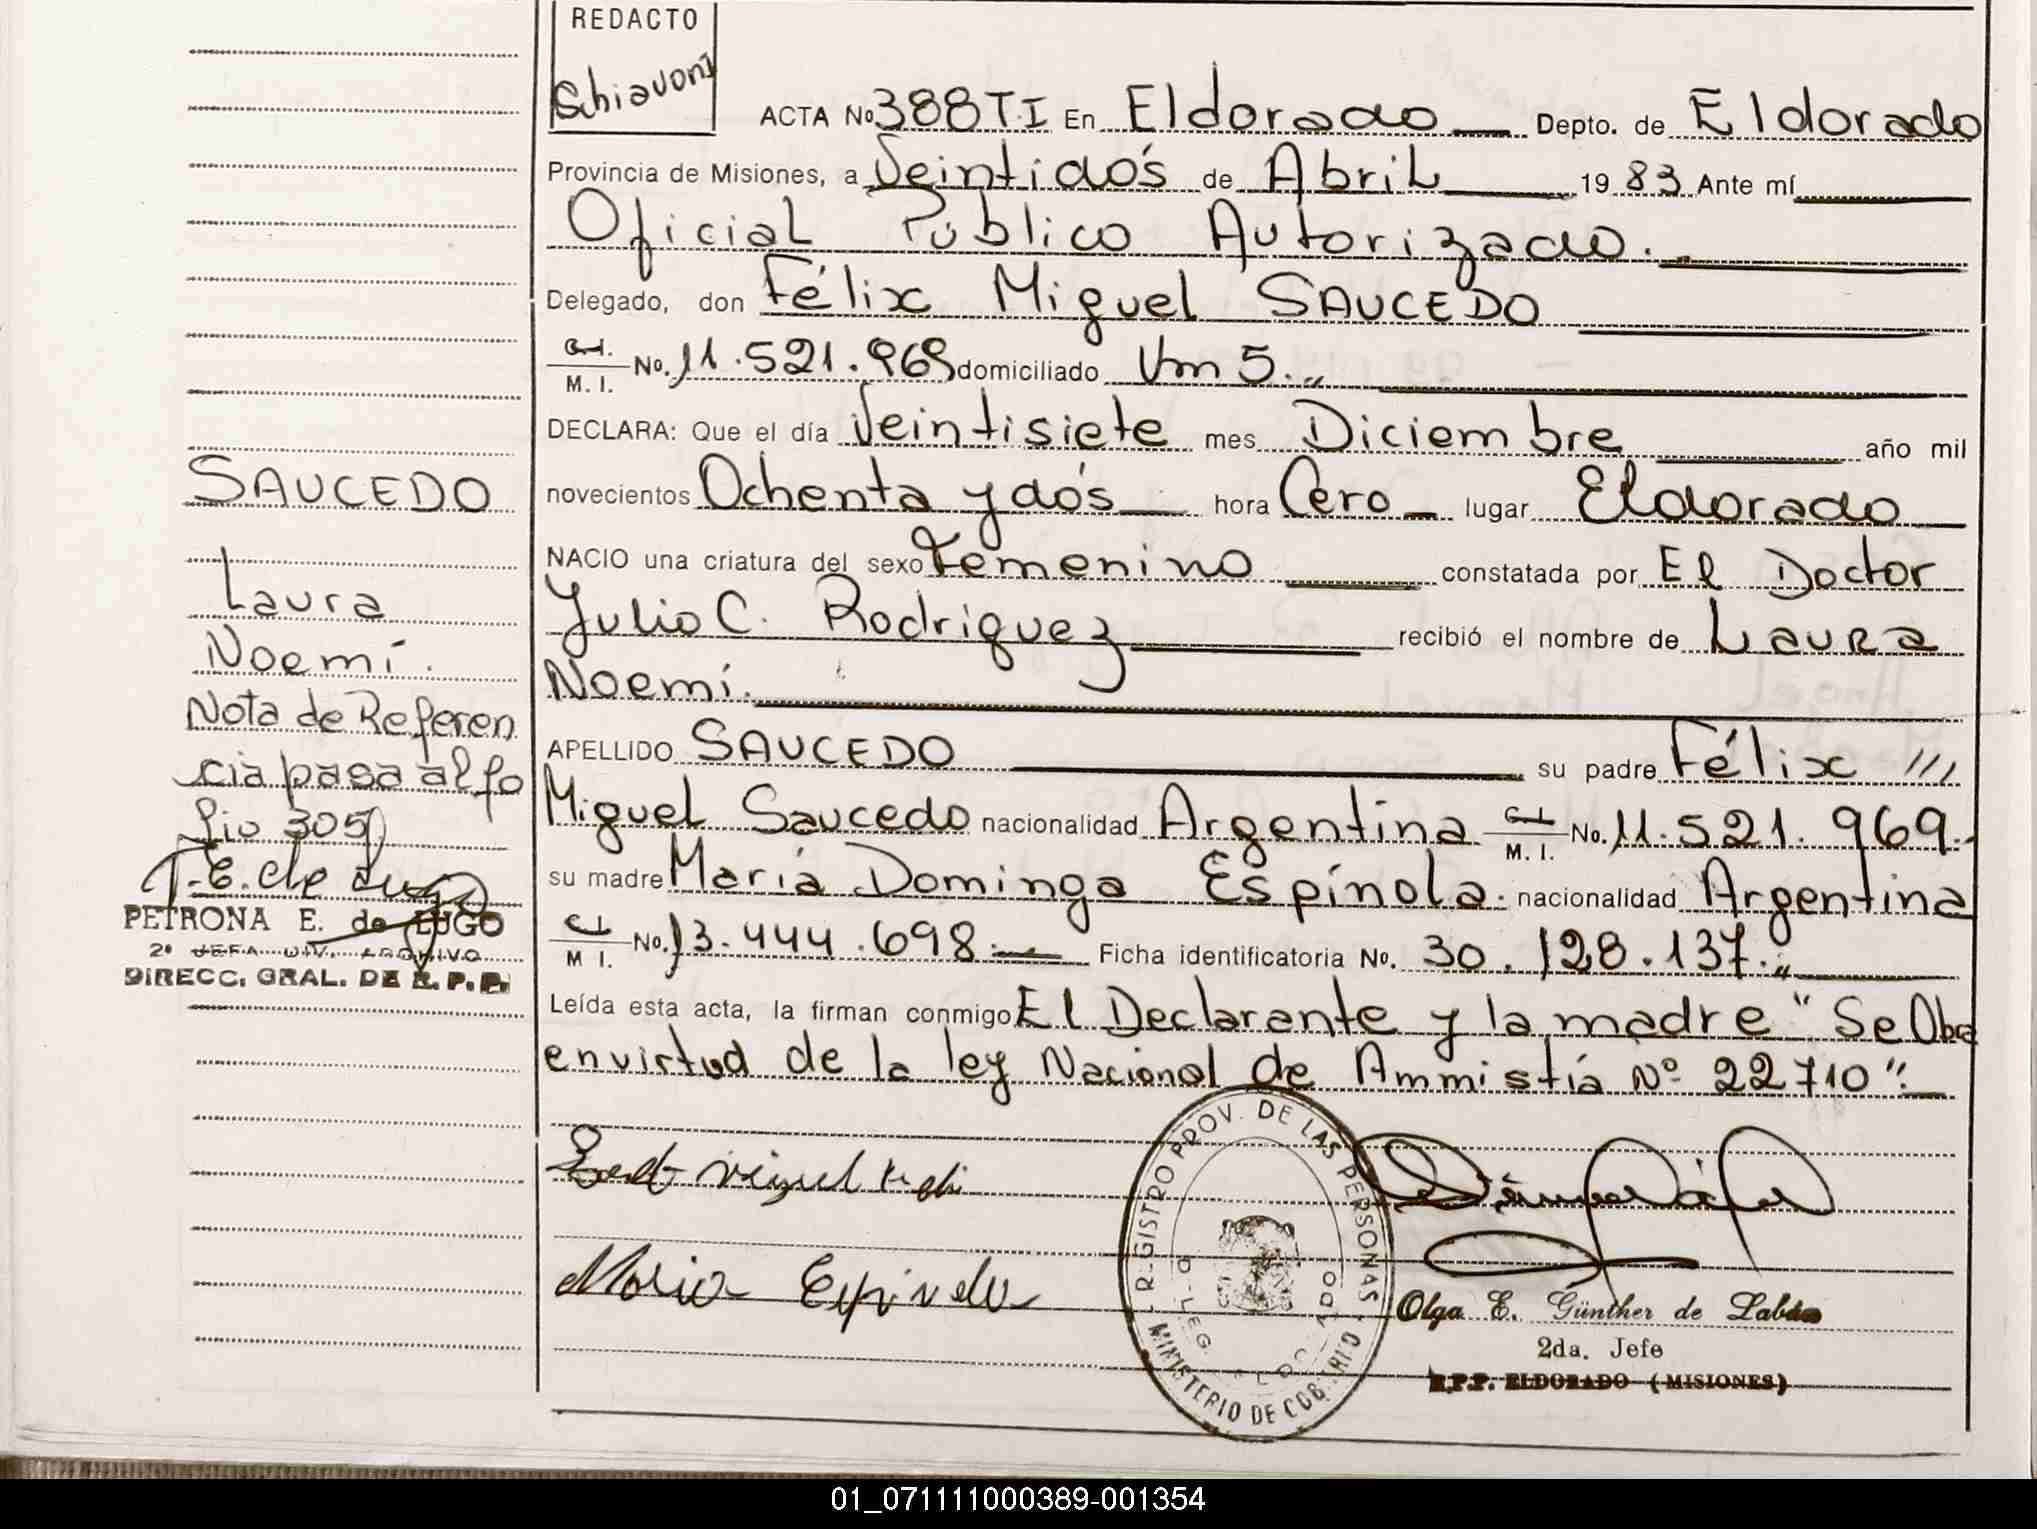 REDACTO
Schiavoni
ACTA No 388 T.I En Eldorado Depto. de Eldorado
Provincia de Misiones, a Veintidós de Abril 19 83 Ante mí
Oficial Público Autorizado.
Delegado, don Félix Miguel SAUCEDO
C.I. M. I. No. 11.521.969 domiciliado Km 5.,,
DECLARA: Que el día Veintisiete mes Diciembre año mil
novecientos Ochenta y dós hora Cero lugar Eldorado
NACIO una criatura del sexo Femenino constatada por El Doctor
Julio C. Rodriguez recibió el nombre de Laura
Noemí.
APELLIDO SAUCEDO su padre Félix ///
Miguel Saucedo nacionalidad Argentina C.I. M. I. No. 11.521.969.-
su madre María Dominga Espínola. nacionalidad Argentina
C.I. M I. No. 13.444.698.- Ficha identificatoria No. 30.128.137.,,
Leída esta acta, la firman conmigo El Declarante y la madre "Se Obra
en virtud de la ley Nacional de Ammistía Nº 22710".-
SAUCEDO
Laura
Noemí.
Nota de Referen
cia pasa al fo
lio 305
PETRONA E. de LUGO
2º JEFA DIV. ARCHIVO
DIRECC. GRAL. DE R. P. P.
Maria Espindola
REGISTRO PROV. DE LAS PERSONAS
MINISTERIO DE GOBIERNO
Olga E. Günther de Labán
2da. Jefe
R.P.P. ELDORADO (MISIONES)
01_071111000389-001354